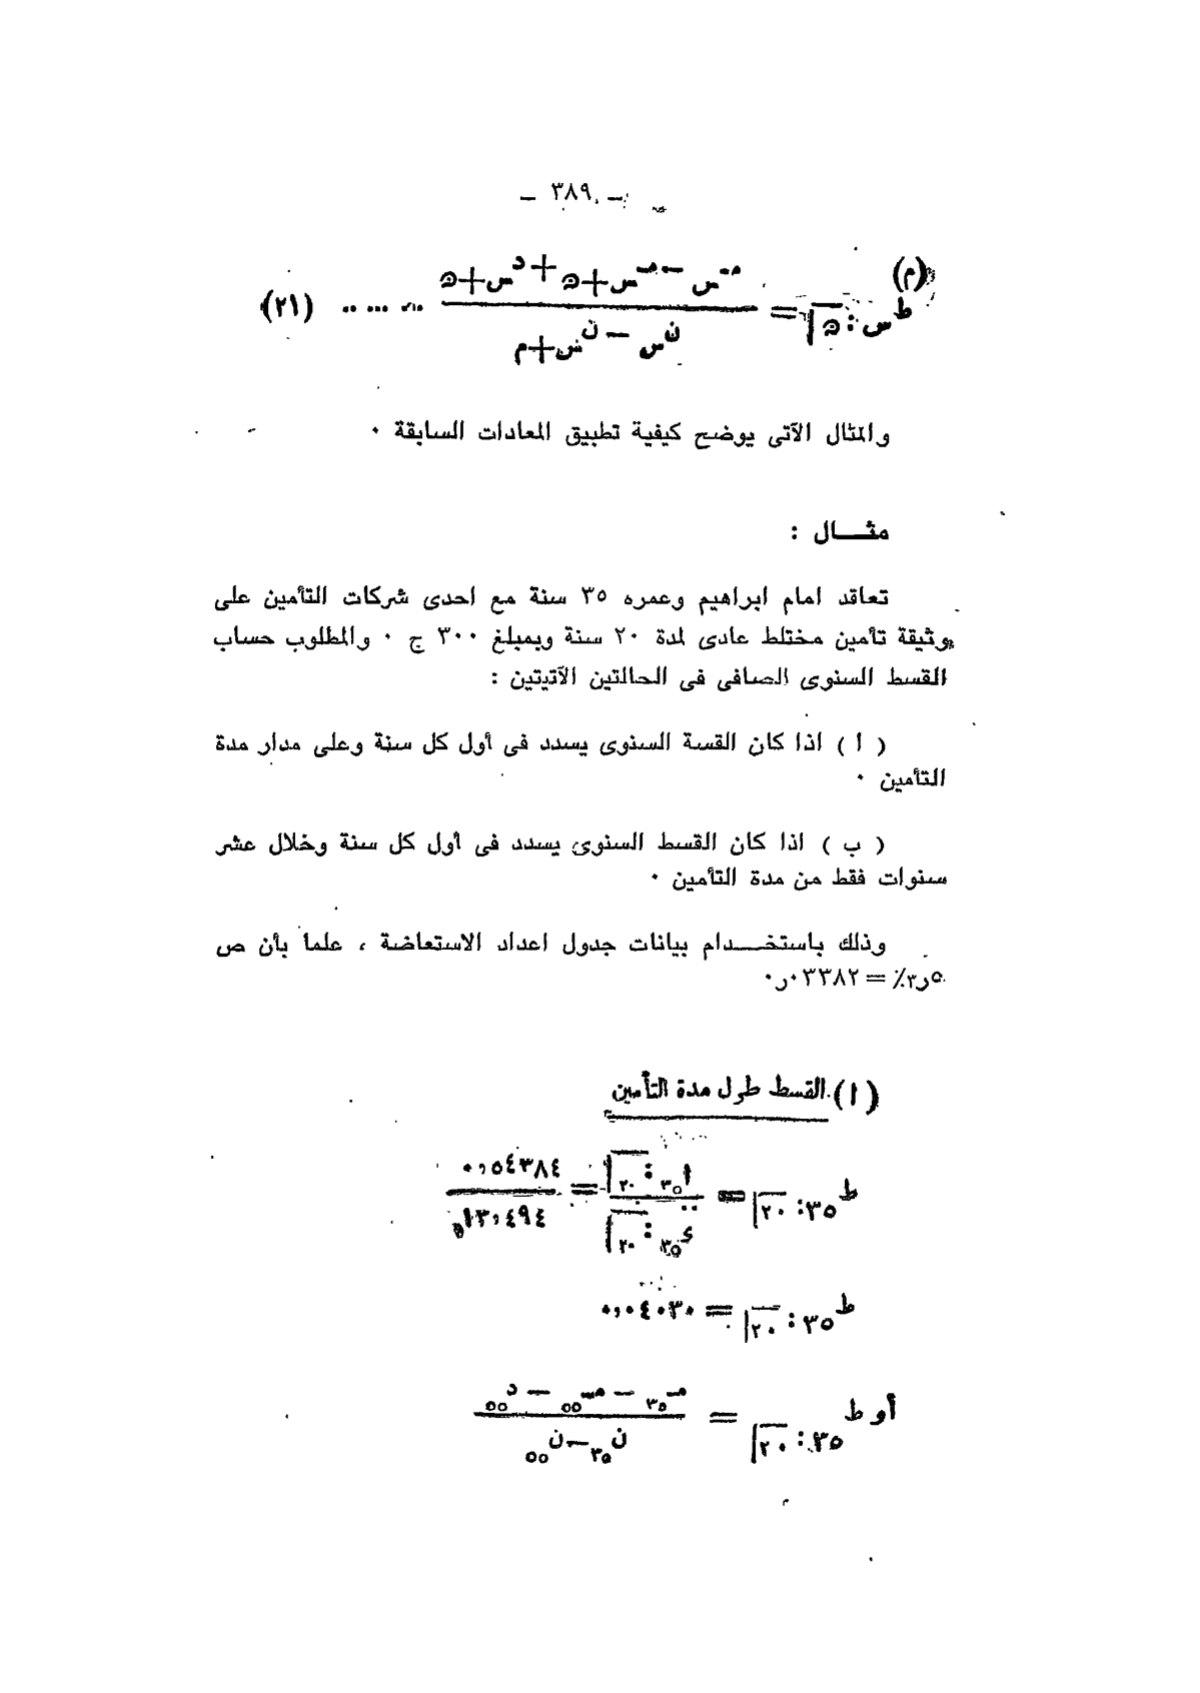 – ٣٨٩ –
(م)
ط س : ن = (م س – م س+ن + د س+ن) / (ن س – ن س+م) ...... (٢١)
والمثال الآتى يوضح كيفية تطبيق المعادات السابقة ٠
مثـــال :
تعاقد امام ابراهيم وعمره ٣٥ سنة مع احدى شركات التأمين على
وثيقة تأمين مختلط عادى لمدة ٢٠ سنة وبمبلغ ٣٠٠ ج ٠ والمطلوب حساب
القسط السنوى الصافى فى الحالتين الآتيتين :
( أ ) اذا كان القسة السنوى يسدد فى أول كل سنة وعلى مدار مدة
التأمين ٠
( ب ) اذا كان القسط السنوى يسدد فى أول كل سنة وخلال عشر
سنوات فقط من مدة التأمين ٠
وذلك باستخـــدام بيانات جدول اعداد الاستعاضة ، علما بأن ص
٥ر٣٪ = ٠٣٣٨٢ر٠
(أ) القسط طول مدة التأمين
ط ٣٥ : ٢٠ = أ ٣٥ : ٢٠ / ء ٣٥ : ٢٠ = ٠,٥٤٣٨٤ / ١٣,٤٩٤
ط ٣٥ : ٢٠ = ٠,٠٤٠٣٠
أو ط ٣٥ : ٢٠ = (م ٣٥ – م ٥٥ – د ٥٥) / (ن ٣٥ – ن ٥٥)